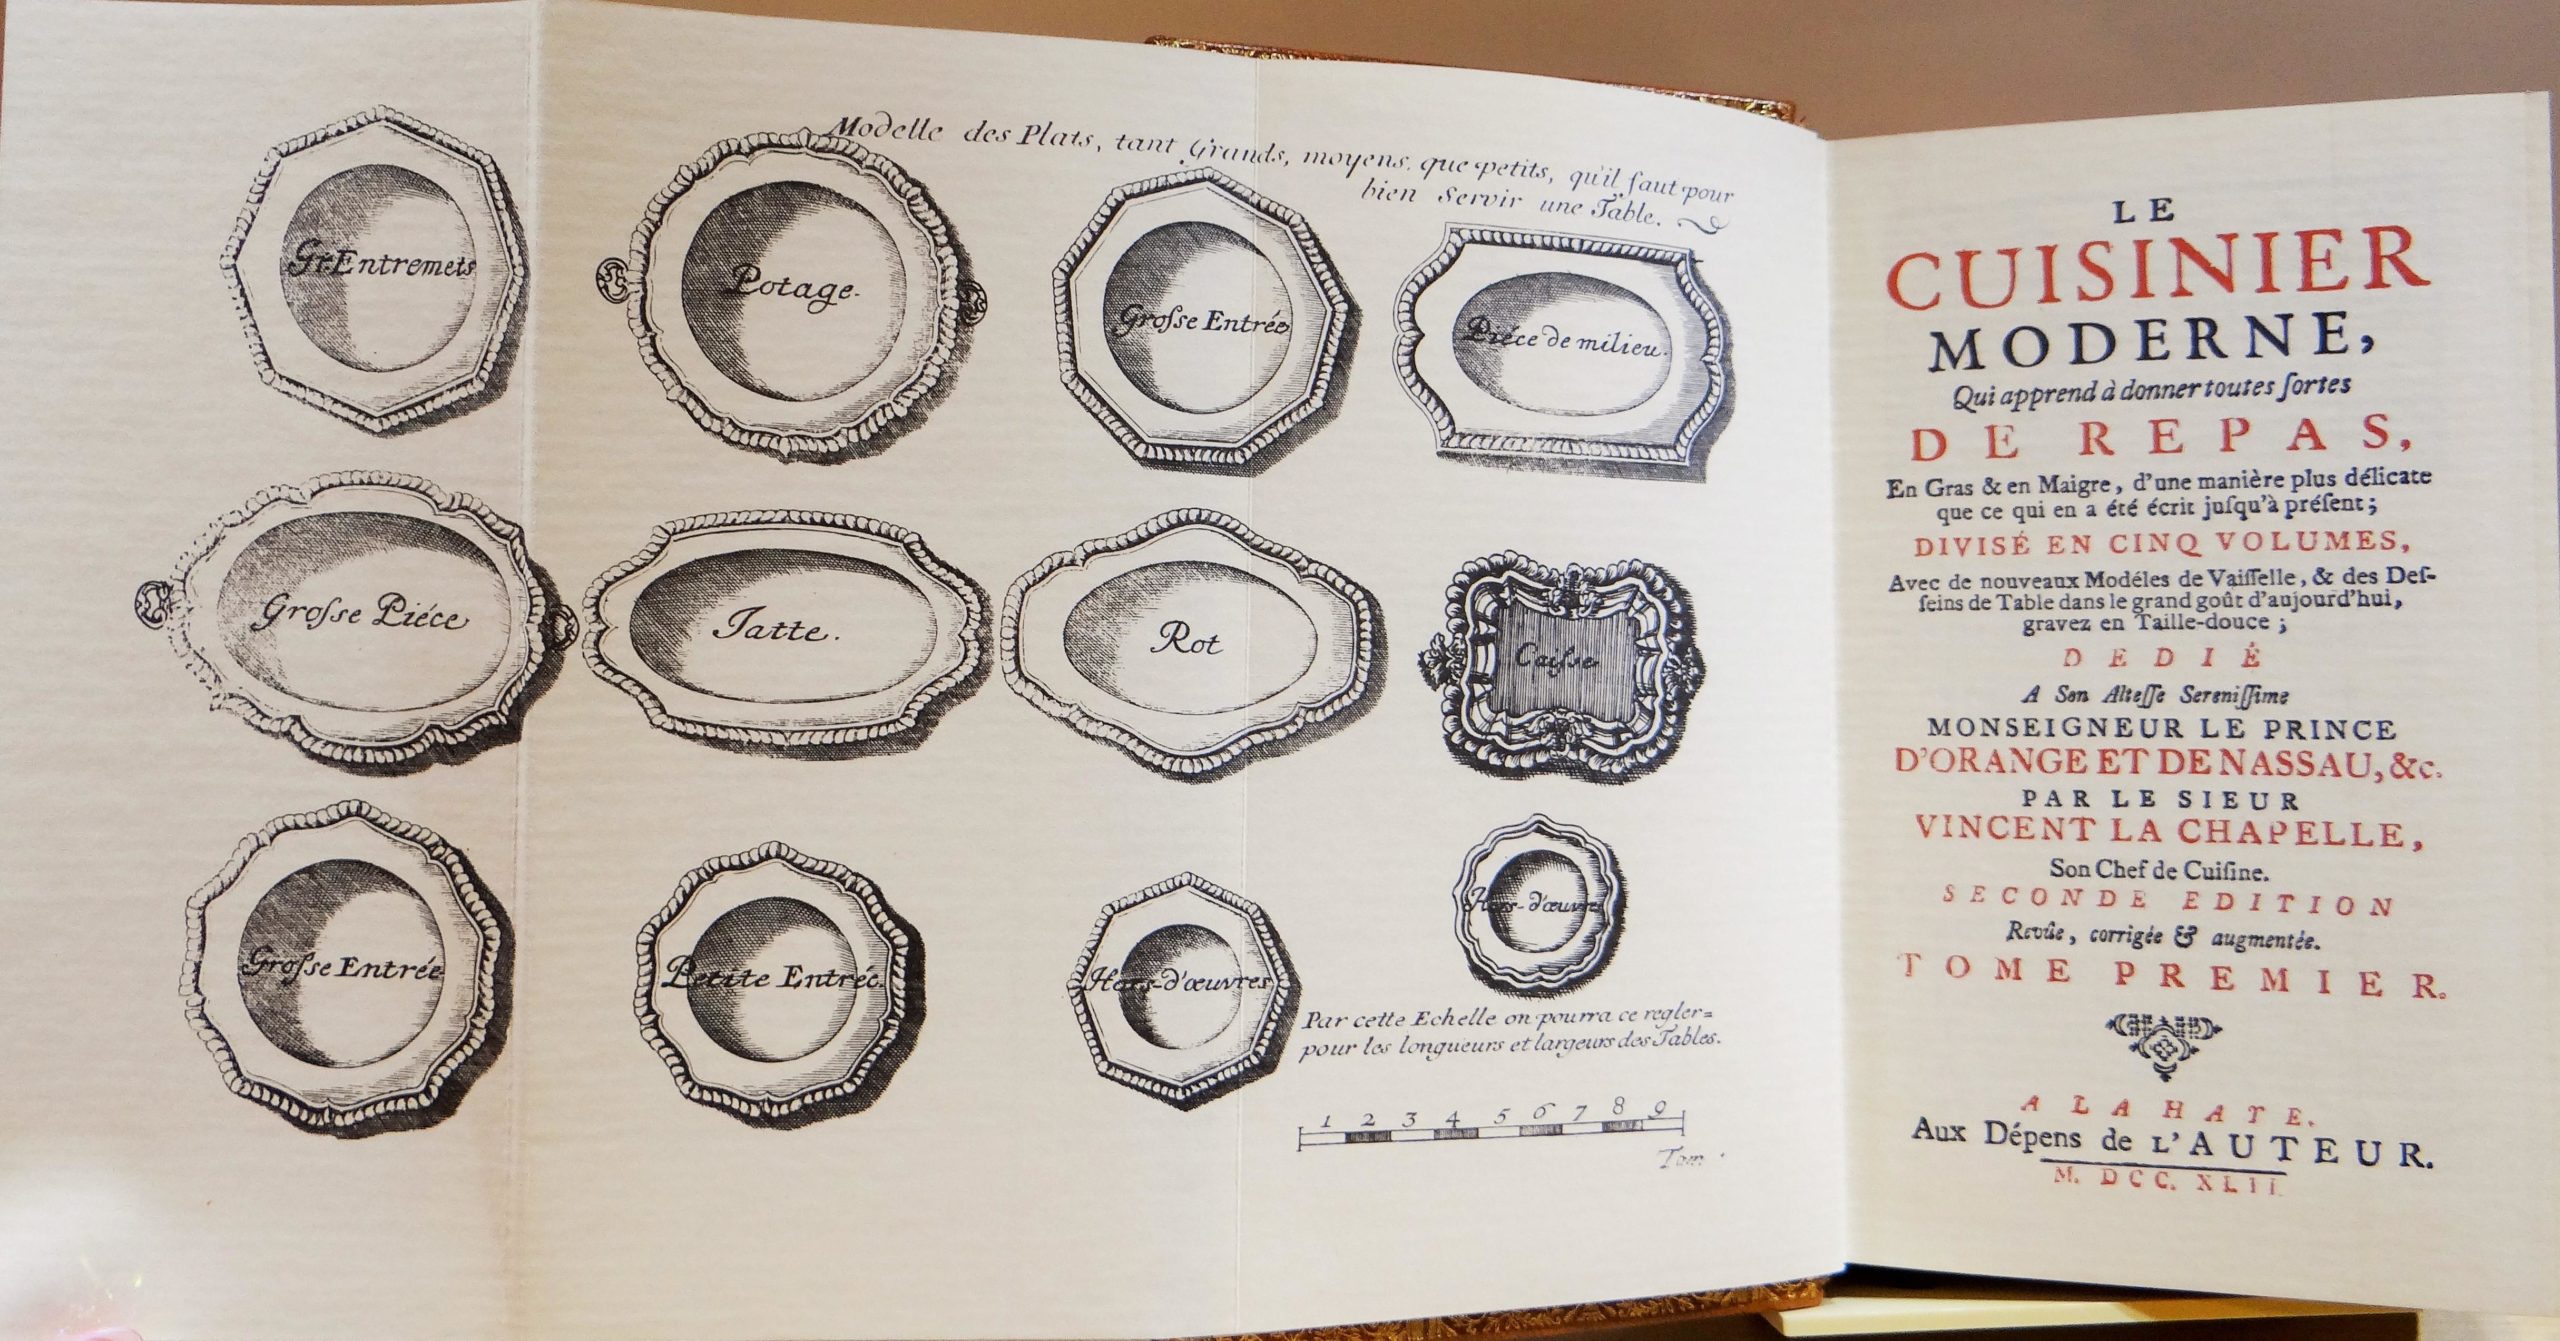 Modelle des Plats, tant Grands, moyens, que petits, qu'il faut pour
bien Servir une Table.
Gr. Entremets
Potage.
Grosse Entrée
Piéce de milieu.
Grosse Piéce
Jatte.
Rot
Caisse
Grosse Entrée
Petite Entrée.
Hors-d'œuvres
Hors-d'œuvres
Par cette Echelle on pourra ce regler=
pour les longueurs et largeurs des Tables.
1 2 3 4 5 6 7 8 9
Tom
LE
CUISINIER
MODERNE,
Qui apprend à donner toutes ſortes
DE REPAS,
En Gras & en Maigre, d'une manière plus délicate
que ce qui en a été écrit juſqu'à préſent;
DIVISÉ EN CINQ VOLUMES,
Avec de nouveaux Modéles de Vaiſſelle, & des Deſ-
ſeins de Table dans le grand goût d'aujourd'hui,
gravez en Taille-douce;
DEDIÉ
A Son Alteſſe Sereniſſime
MONSEIGNEUR LE PRINCE
D'ORANGE ET DE NASSAU, &c.
PAR LE SIEUR
VINCENT LA CHAPELLE,
Son Chef de Cuiſine.
SECONDE EDITION
Revûe, corrigée & augmentée.
TOME PREMIER.
A LA HAYE.
Aux Dépens de L'AUTEUR.
M. DCC. XLII.